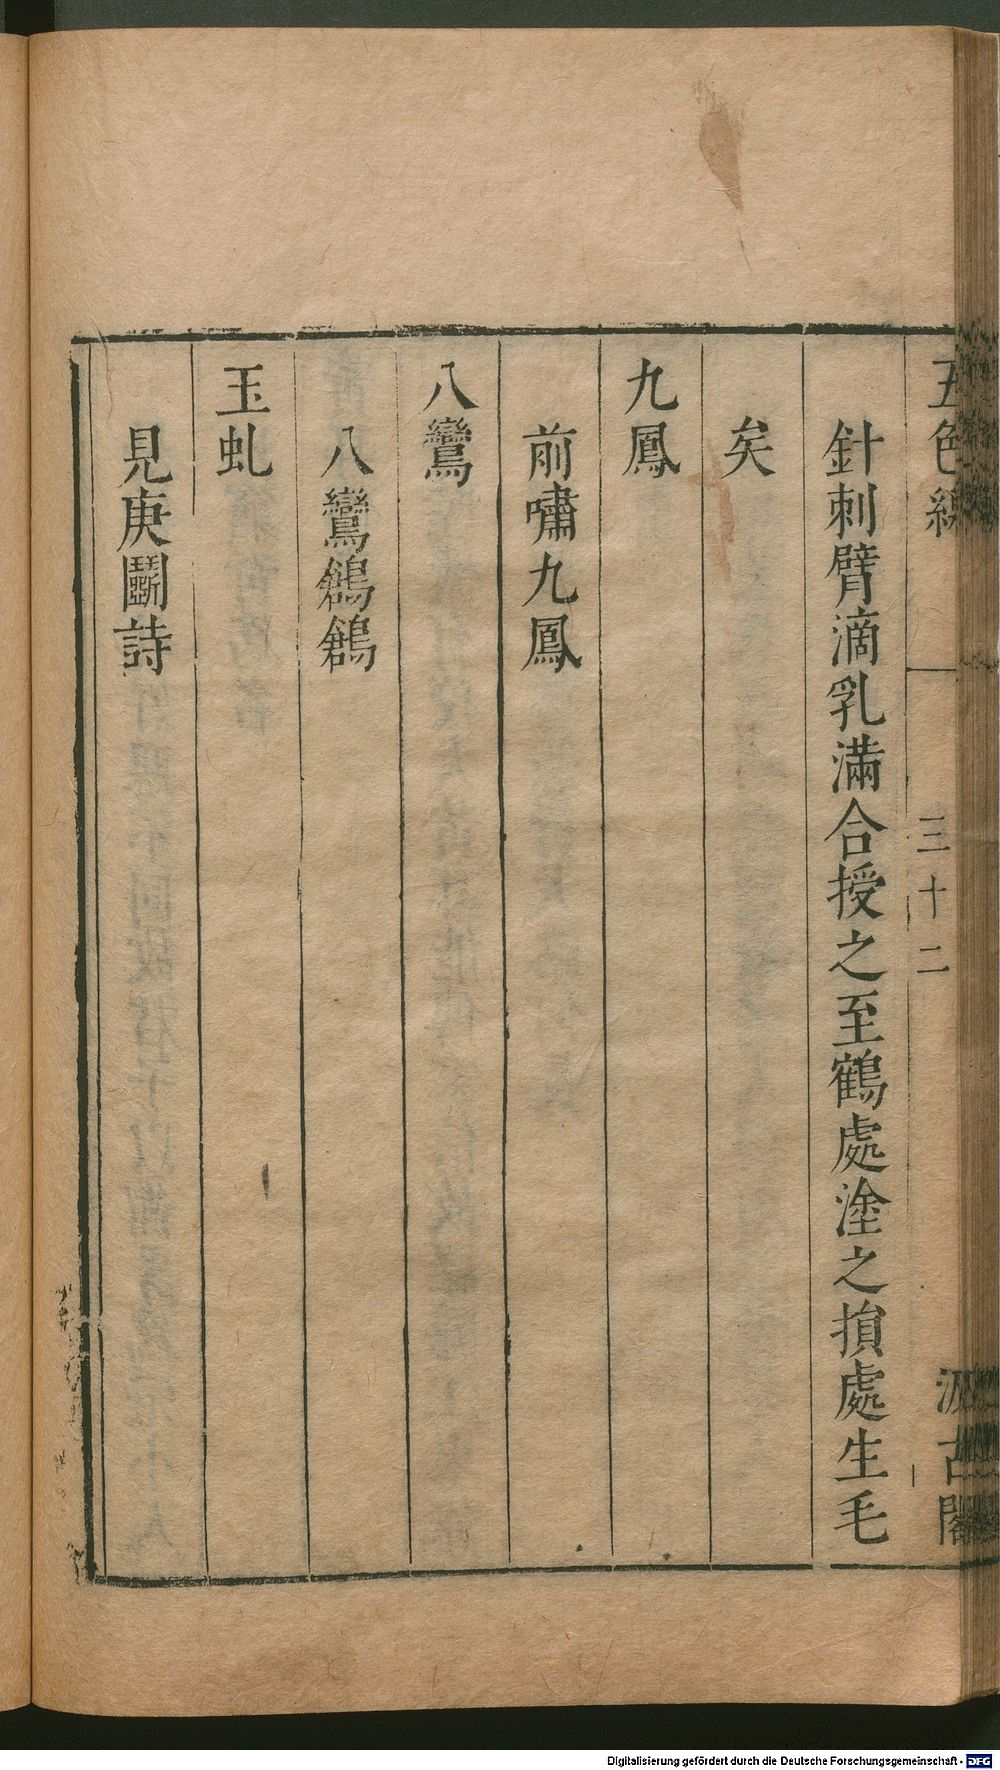 五色線
三十二
汲古閣
針刺臂滴乳滿合授之至鶴處塗之損處生毛
矣
九鳳
前嘯九鳳
八鸞
八鸞鶬鶬
玉虬
見庚鬭詩
Digitalisierung gefördert durch die Deutsche Forschungsgemeinschaft - DFG